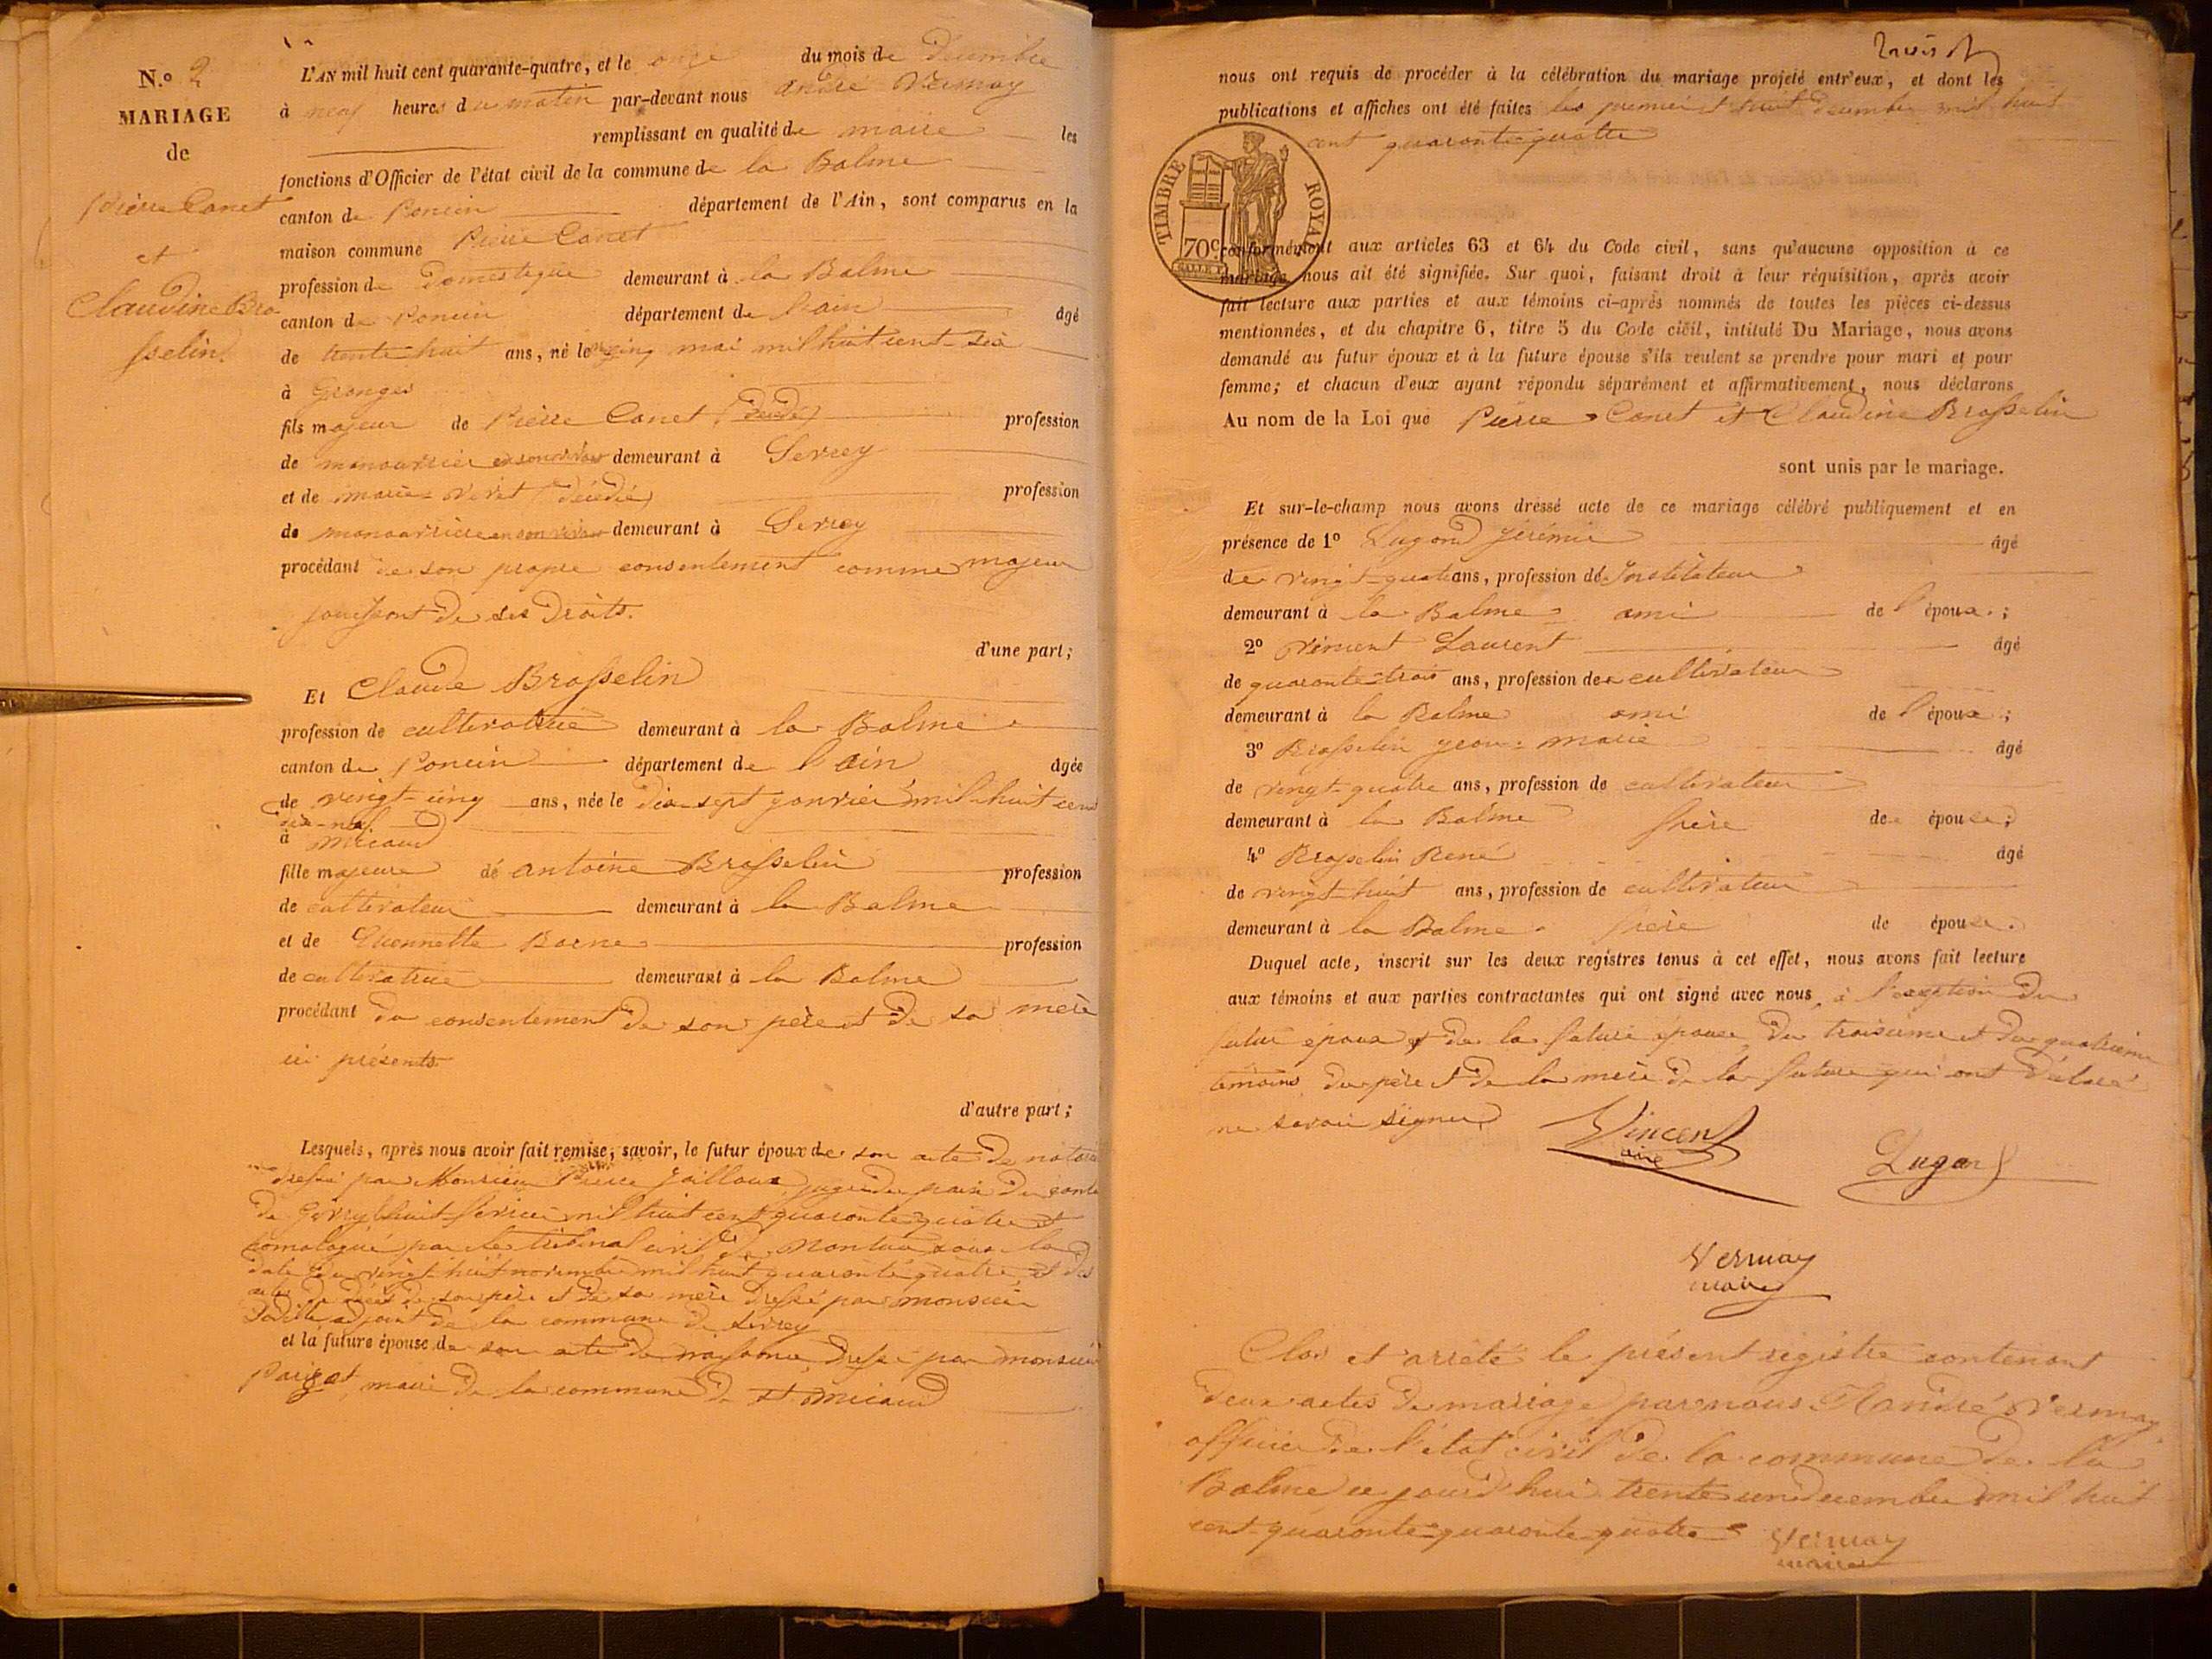 N.o 2
MARIAGE
de
Pierre Canet
et
Claudine Bro-
sselin.
L'AN mil huit cent quarante-quatre, et le onze du mois de Decembre
à neuf heures du matin par-devant nous andré Vernay
remplissant en qualité de maire les
fonctions d'Officier de l'état civil de la commune de la Balme
canton de Poncin département de l'Ain, sont comparus en la
maison commune Pierre Canet
profession de Domestique demeurant à la Balme
canton de Poncin département de l'ain âgé
de trente huit ans, né le cinq mai mil huit cent six
à Granges
fils majeur de Pierre Canet (décédé) profession
de manouvrier en son vivant demeurant à Servey
et de marie Veret (décédée) profession
de manouvrière en son vivant demeurant à Servey
procédant de son propre consentement comme majeur
jouissant de ses Droits.
d'une part;
Et Claude Brosselin
profession de cultivatrice demeurant à la Balme
canton de Poncin département de l'ain âgée
de vingt-cinq ans, née le dix-sept janvier mil huit cent
dix-neuf
à Micaud
fille majeure de antoine Brosselin profession
de cultivateur demeurant à la Balme
et de profession
de cultivatrice demeurant à la Balme
procédant du consentement de son père et de sa mère
ici présents
d'autre part;
Lesquels, après nous avoir fait remise; savoir, le futur époux de son acte de notorié
dressé par Monsieur Pierre juge de paix du canton
de huit fevrier mil huit cent quarante quatre et
homologué par le tribunal civil de Nantua sous la
date du vingt-huit novembre mil huit quarante quatre, et des
actes de décès de son père et de sa mère dressé par monsieur
adjoint de la commune de Servey
et la future épouse de son acte de naissance dressé par monsieur
Parizot, maire de la commune de St Micaud
nous ont requis de procéder à la célébration du mariage projeté entr'eux, et dont les
publications et affiches ont été faites les premier et huit decembre mil huit
cent quarante-quatre
TIMBRE ROYAL
70 c.
conformément aux articles 63 et 64 du Code civil, sans qu'aucune opposition à ce
mariage nous ait été signifiée. Sur quoi, faisant droit à leur réquisition, après avoir
fait lecture aux parties et aux témoins ci-après nommés de toutes les pièces ci-dessus
mentionnées, et du chapitre 6, titre 5 du Code civil, intitulé Du Mariage, nous avons
demandé au futur époux et à la future épouse s'ils veulent se prendre pour mari et pour
femme; et chacun d'eux ayant répondu séparément et affirmativement, nous déclarons
Au nom de la Loi que Pierre Canet et Claudine Brosselin
sont unis par le mariage.
Et sur-le-champ nous avons dréssé acte de ce mariage célébré publiquement et en
présence de 1º Lugand Jérémie âgé
de vingt-quatre ans, profession de Instituteur
demeurant à la Balme ami de l'époux.;
2º Vincent Laurent âgé
de quarante-trois ans, profession de cultivateur
demeurant à la Balme ami de l'époux;
3º Brosselin jean-marie âgé
de vingt-quatre ans, profession de cultivateur
demeurant à la Balme frère de épouse;
4º Brosselin René âgé
de vingt-huit ans, profession de cultivateur
demeurant à la Balme frère de épouse.
Duquel acte, inscrit sur les deux registres tenus à cet effet, nous avons fait lecture
aux témoins et aux parties contractantes qui ont signé avec nous, à l'exeption du
futur époux et de la future épouse, du troisième et du quatrième
témoins du père et de la mère de la future qui ont déclaré
ne savoir signer
Vincent
Lugand
Vernay
maire
Clos et arrêté le présent régistre contenant
deux actes de mariage par nous andré Vernay
officier de l'état civil de la commune de la
Balme ce jourd'hui trente un decembre mil huit
cent-quarante-quarante-quatre
Vernay
maire